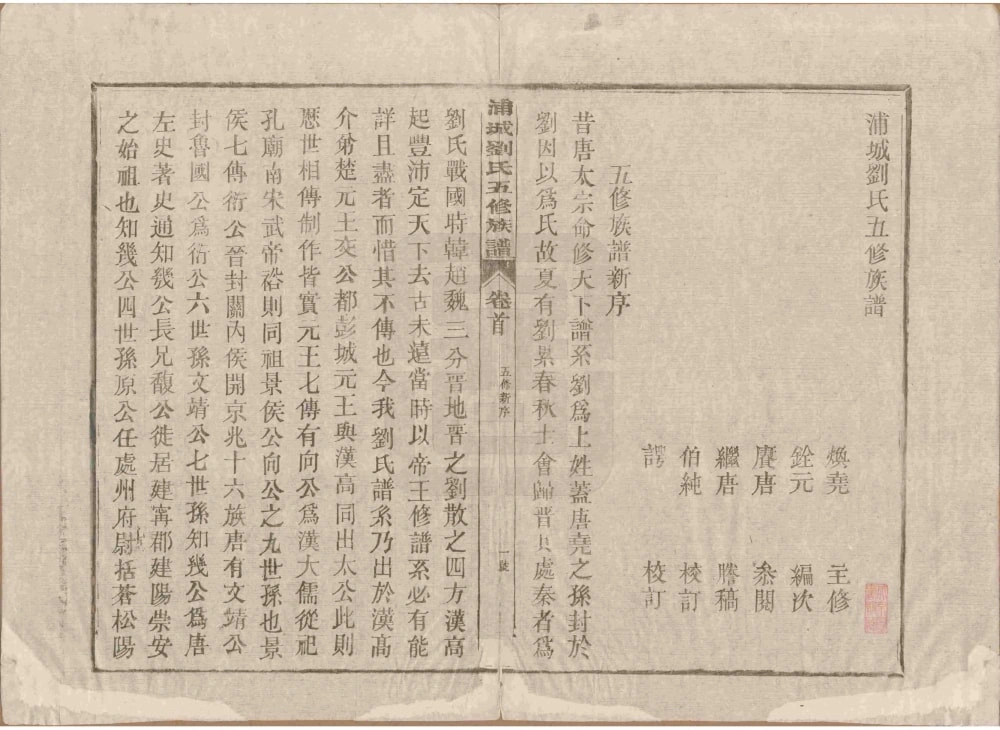 浦城劉氏五修族譜
煥堯 主修
銓元 編次
賡唐 叅閱
繼唐 謄稿
伯純 校訂
諤 校訂
五修族譜新序
昔唐太宗命修天下譜系劉爲上姓蓋唐堯之孫封於
劉因以爲氏故夏有劉累春秋士會歸晋其處秦者爲
浦城劉氏五修族譜 卷首 五修新序 一號
劉氏戰國時韓趙魏三分晋地晋之劉散之四方漢高
起豐沛定天下去古未遠當時以帝王修譜系必有能
詳且盡者而惜其不傳也今我劉氏譜系乃出於漢髙
介弟楚元王交公都彭城元王與漢高同出太公此則
歷世相傳制作皆實元王七傳有向公爲漢大儒從祀
孔廟南宋武帝裕則同祖景侯公向公之九世孫也景
侯七傳衍公晉封關內侯開京兆十六族唐有文靖公
封魯國公爲衍公六世孫文靖公七世孫知幾公爲唐
左史著史通知幾公長兄馥公徙居建寕郡建陽崇安
之始祖也知幾公四世孫原公任處州府尉括蒼松陽